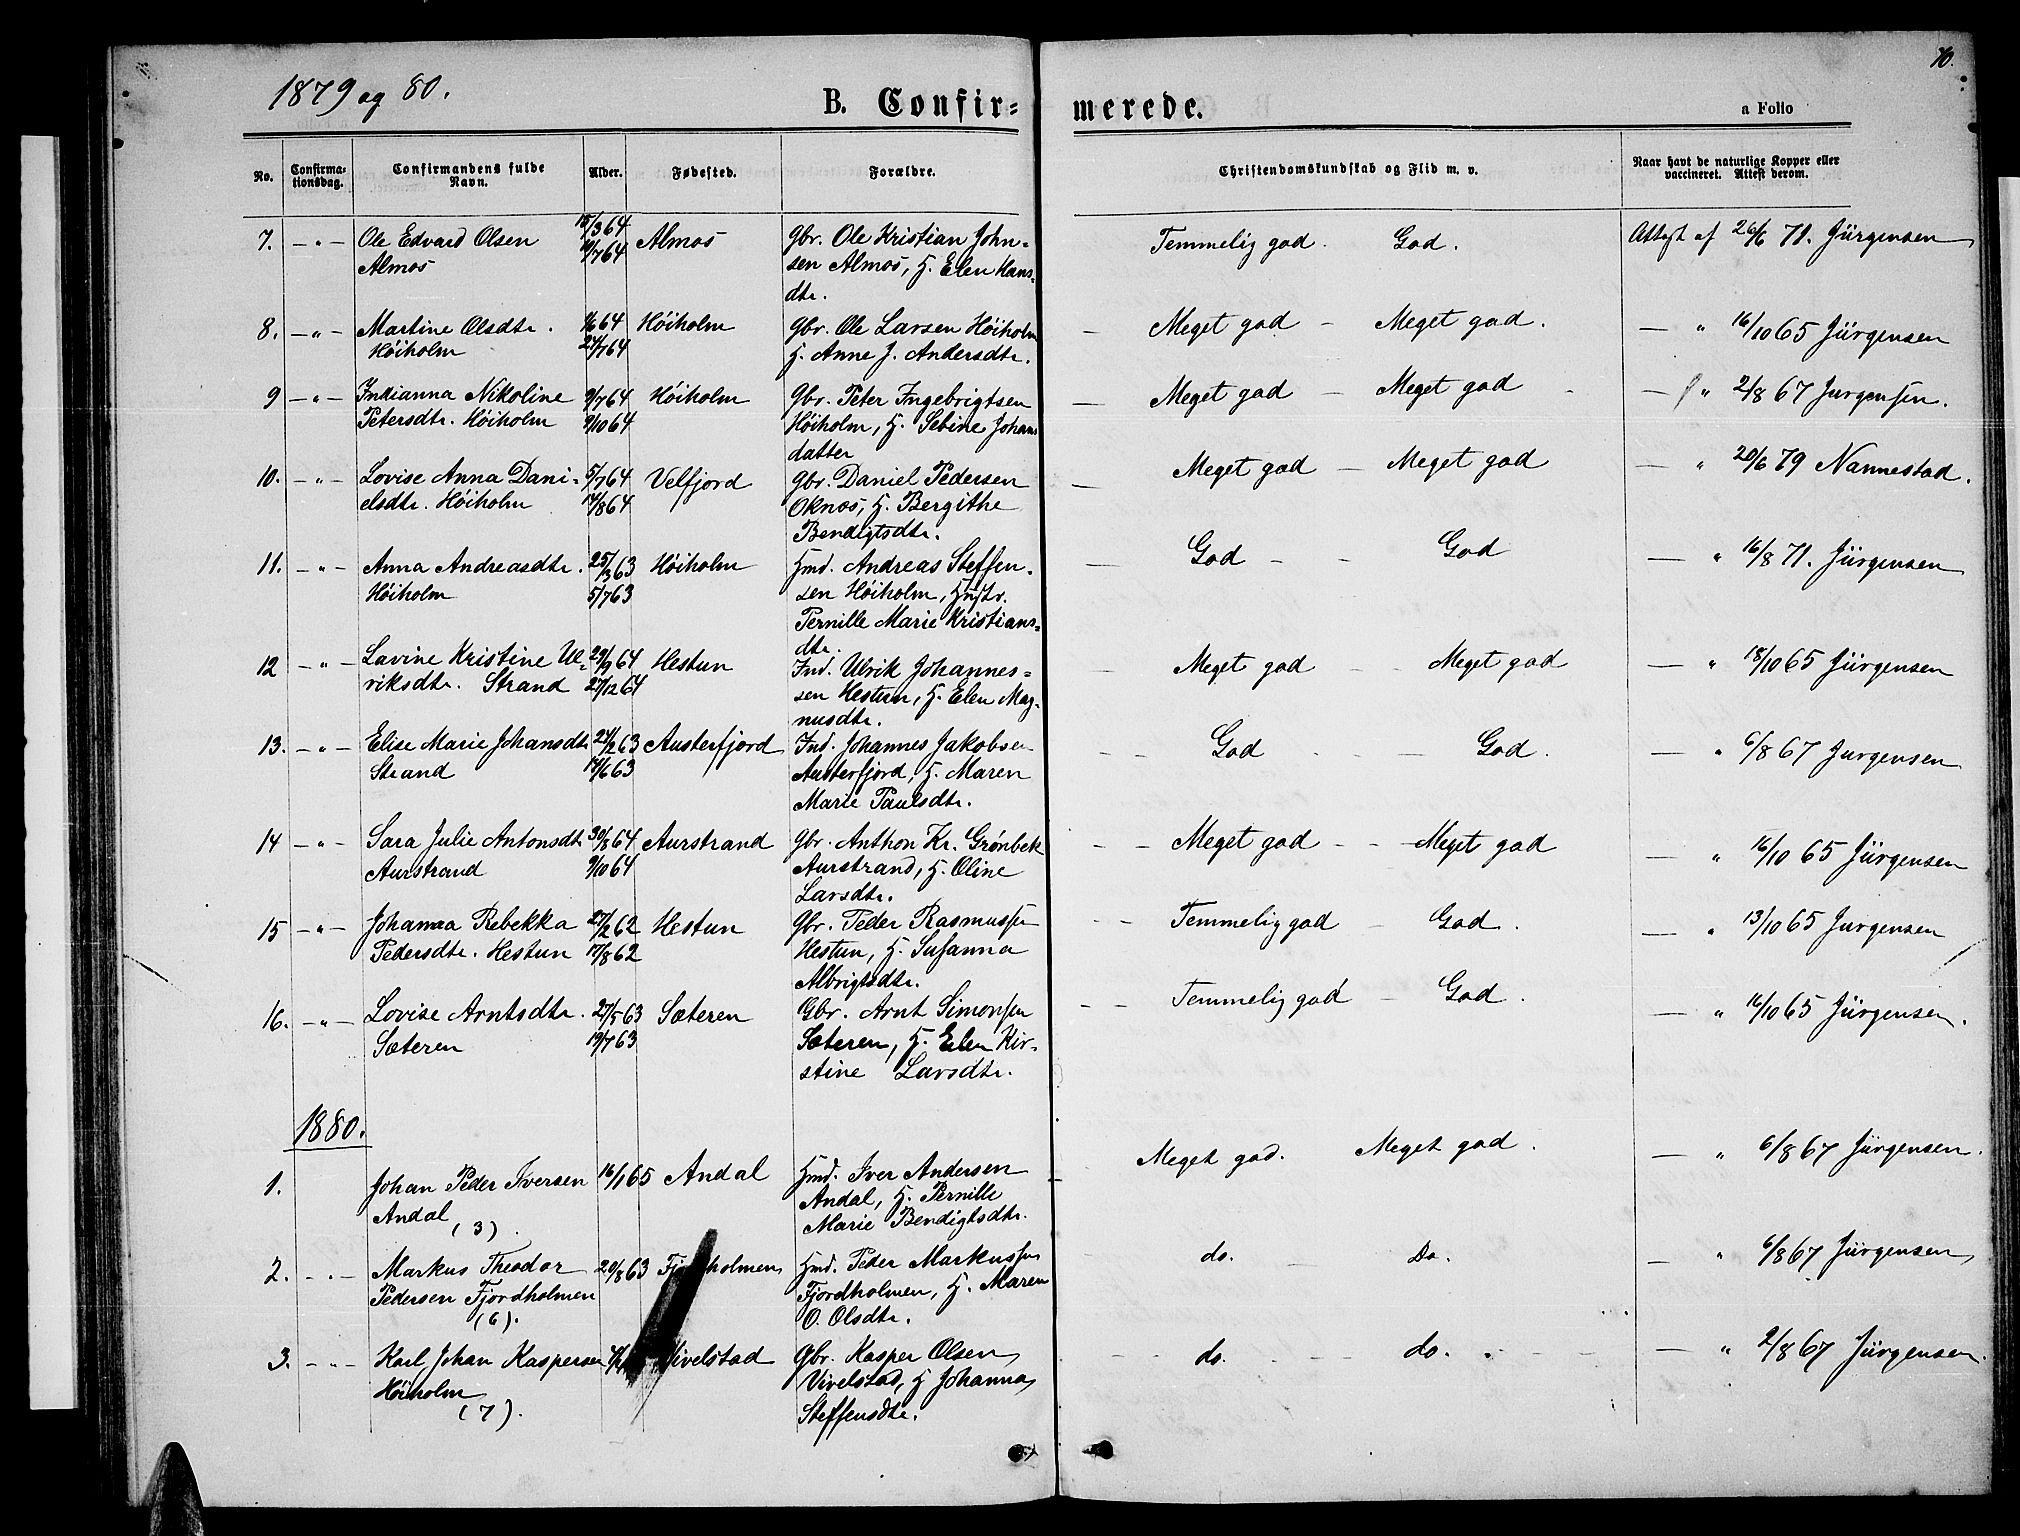 1879 og 80.
B. Confir=
merede.
70.
a Folio
No.
Confirma-
tionsdag.
Confirmandens fulde
Navn.
Alder.
Fødested.
Forældre.
Christendomskundskab og Flid m. v.
Naar havt de naturlige Kopper eller
vaccineret. Attest derom.
7. — " — Ole Edvard Olsen 15/3 64 Almos Gbr. Ole Kristian John= Temmelig god. God. Attest af 26/6 71. Jürgensen
Almos 10/7 64 sen Almos, H. Elen Hans=
dtr.
8. — " — Martine Olsdtr. 1/6 64 Høiholm Gbr. Ole Larsen Høiholm — Meget god — Meget god. — " 16/10 65 Jürgensen
Høiholm 24/7 64 H. Anne J. Andersdtr.
9 — " — Indianna Nikoline 9/7 64 Høiholm Gbr. Peter Ingebrigtsen — Meget god — Meget god — " 2/8 67 Jurgensen.
Petersdtr. Høiholm 9/10 64 Høiholm, H. Sebine Johans
datter
10. — " — Lovise Anna Dani- 5/7 64 Velfjord Gbr. Daniel Pedersen — Meget god — Meget god — " 20/6 79 Nannestad.
elsdtr. Høiholm 14/8 64 Oknos, H. Bergithe
Bendigtsdtr.
11. — " — Anna Andreasdtr. 25/3 63 Høiholm Hmd. Andreas Steffen- — God — — God — " 16/8 71. Jürgensen
Høiholm 5/7 63 sen Høiholm, Hustr.
Pernille Marie Kristians=
dtr.
12 — " — Lavine Kristine Ul- 29/9 64 Hestun Ind. Ulrik Johannes= Meget god — — Meget god — " 18/10 65 Jürgensen
riksdtr. Strand 27/12 64 sen Hestun, H. Elen Mag-
nusdtr.
13. — " — Elise Marie Johansdtr 24/2 63 Austerfjord Ind. Johannes Jakobsen — — God — — God. — " 6/8 67 Jurgensen.
Strand 14/6 63 Austerfjord, H. Maren
Marie Paulsdtr.
14 — " — Sara Julie Antonsdtr 30/8 64 Aurstrand Gbr. Anthon Kr. Grønbek — — Meget god — — Meget god — " 16/10 65 Jürgensen
Aurstrand 9/10 64 Aurstrand, H. Oline
Larsdtr.
15 — " — Johanna Rebekka 27/2 62 Hestun Gbr. Peder Rasmussen — — Temmelig god — God. — " 13/10 65 Jurgensen
Pedersdtr. Hestun 17/8 62 Hestun, H. Susanna
Albrigtsdtr.
16. — " — Lovise Arntsdtr. 27/5 63 Sæteren Gbr. Arnt Simonsen — — Temmelig god — God. — " 16/10 65 Jürgensen.
Sæteren 19/7 63 Sæteren, H. Elen Kir-
stine Larsdtr.
1880.
1. Johan Peder Iversen 16/1 65 Andal Hmd. Iver Andersen Meget god. Meget god. — " 6/8 67 Jürgensen.
Andal Andal, H. Pernille
(3). Marie Bendigtsdtr.
2. — " — Markus Theodor 20/8 63 Hmd. Peder Markussen do. — Do. — " 6/8 67 Jürgensen,
Pedersen Fjordholmen Fjordholmen, H. Maren
(6). O. Olsdtr.
3. — " — Karl Johan Kaspersen Vivelstad Gbr. Kasper Olsen — — do. — — do. — — " 2/8 67 Jürgensen.
Høiholm Vivelstad, H Johanna
(7). Steffensdtr.